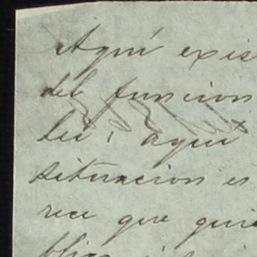 Aquí exis
del funcion
lei; aqui
situacion es
rece que quie